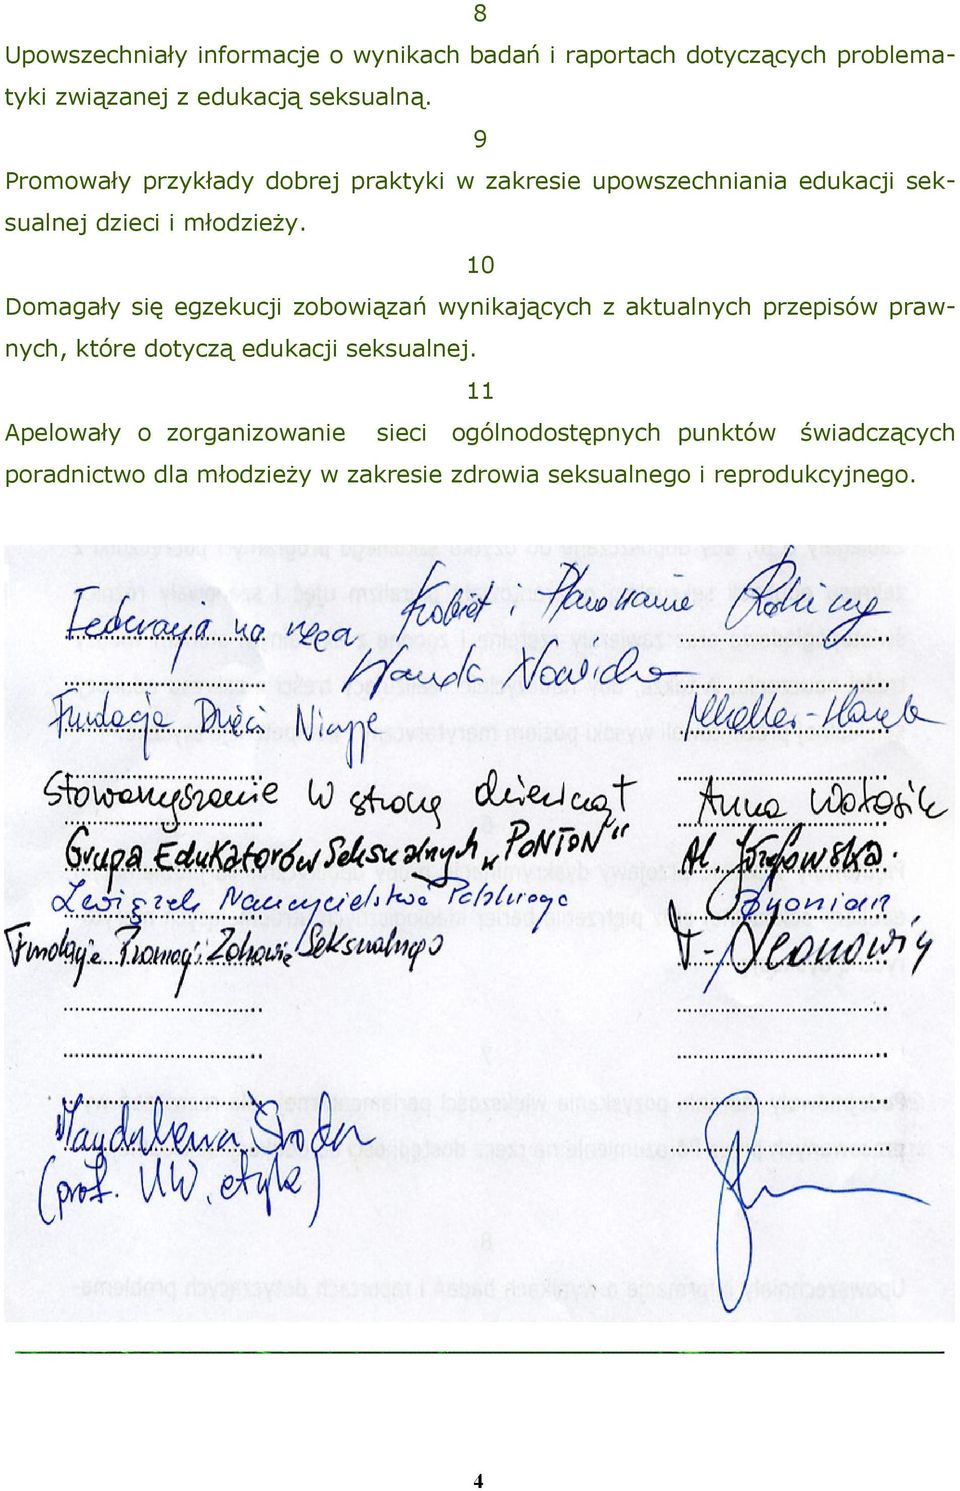 8
Upowszechniały informacje o wynikach badań i raportach dotyczących problema-
tyki związanej z edukacją seksualną.
9
Promowały przykłady dobrej praktyki w zakresie upowszechniania edukacji sek-
sualnej dzieci i młodzieży.
10
Domagały się egzekucji zobowiązań wynikających z aktualnych przepisów praw-
nych, które dotyczą edukacji seksualnej.
11
Apelowały o zorganizowanie sieci ogólnodostępnych punktów świadczących
poradnictwo dla młodzieży w zakresie zdrowia seksualnego i reprodukcyjnego.
Federacja na rzecz Kobiet i Planowania Rodziny
Wanda Nowicka
Fundacja Dzieci Niczyje
Stowarzyszenie W stronę dziewcząt Anna
Grupa Edukatorów Seksualnych „PONTON" Al. Józefowska
Związek Nauczycielstwa Polskiego
Fundacja Promocji Zdrowia Seksualnego
Magdalena Środa
(prof. UW, etyka)
4